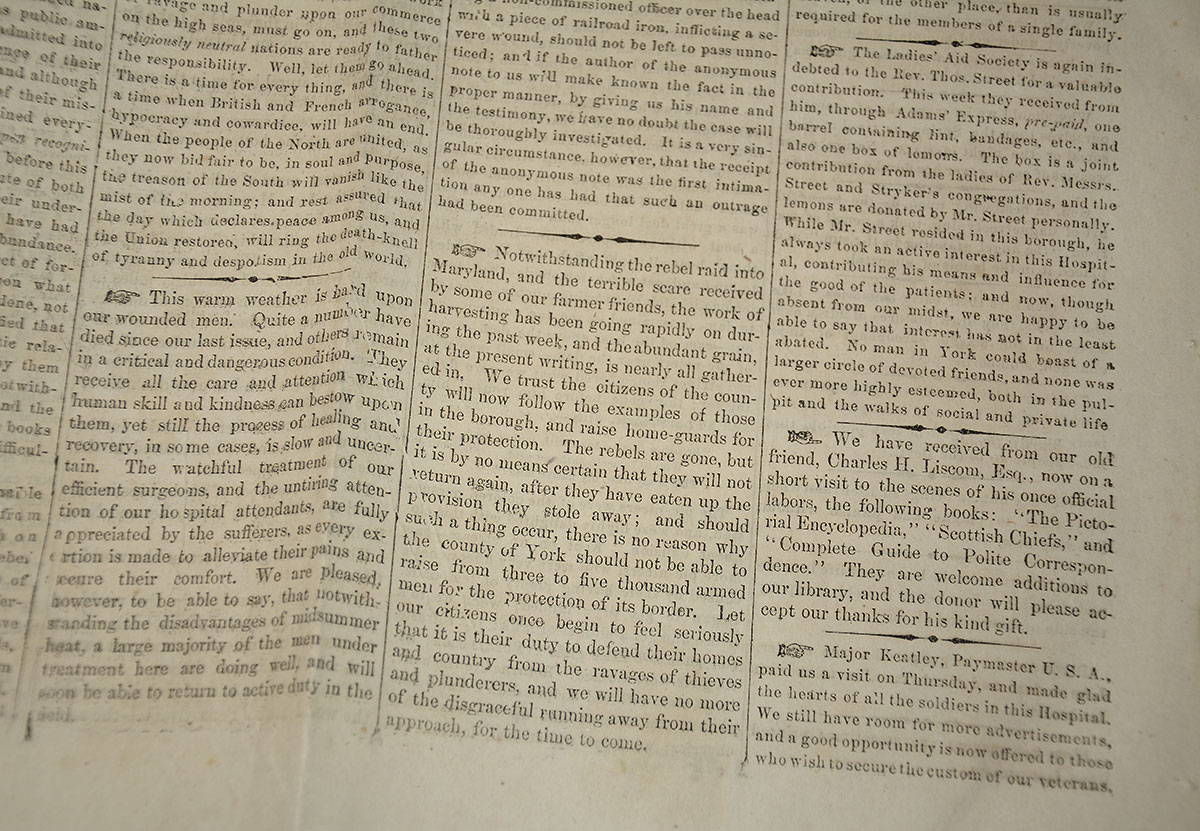 ned na-
s public am-
admitted into
ence of their
and although
of their mis-
ined every-
pen recogni-
before this
ate of both
eir under-
have had
bundance.
ct of for-
on what
done, not
fied that
ie rela-
y them
otwith-
nd the
books
ifficul-
from
on
of
ravage and plunder upon our commerce
on the high seas, must go on, and these two
religiously neutral nations are ready to father
the responsibility. Well, let them go ahead.
There is a time for every thing, and there is
a time when British and French arrogance,
hypocracy and cowardice, will have an end.
When the people of the North are united, as
they now bid fair to be, in soul and purpose,
the treason of the South will vanish like the
mist of the morning; and rest assured that
the day which declares peace among us, and
the Union restored, will ring the death-knell
of tyranny and despotism in the old world.
☞ This warm weather is hard upon
our wounded men. Quite a number have
died since our last issue, and others remain
in a critical and dangerous condition. They
receive all the care and attention which
human skill and kindness can bestow upon
them, yet still the process of healing and
recovery, in some cases, is slow and uncer-
tain. The watchful treatment of our
efficient surgeons, and the untiring atten-
tion of our hospital attendants, are fully
appreciated by the sufferers, as every ex-
ertion is made to alleviate their pains and
secure their comfort. We are pleased,
however, to be able to say, that notwith-
standing the disadvantages of midsummer
heat, a large majority of the men under
treatment here are doing well, and will
soon be able to return to active duty in the
field.
non-commissioned officer over the head
with a piece of railroad iron, inflicting a se-
vere wound, should not be left to pass unno-
ticed; and if the author of the anonymous
note to us will make known the fact in the
proper manner, by giving us his name and
the testimony, we have no doubt the case will
be thoroughly investigated. It is a very sin-
gular circumstance, however, that the receipt
of the anonymous note was the first intima-
tion any one has had that such an outrage
had been committed.
☞ Notwithstanding the rebel raid into
Maryland, and the terrible scare received
by some of our farmer friends, the work of
harvesting has been going rapidly on dur-
ing the past week, and the abundant grain,
at the present writing, is nearly all gather-
ed in. We trust the citizens of the coun-
ty will now follow the examples of those
in the borough, and raise home-guards for
their protection. The rebels are gone, but
it is by no means certain that they will not
return again, after they have eaten up the
provision they stole away; and should
such a thing occur, there is no reason why
the county of York should not be able to
raise from three to five thousand armed
men for the protection of its border. Let
our citizens once begin to feel seriously
that it is their duty to defend their homes
and country from the ravages of thieves
and plunderers, and we will have no more
of the disgraceful running away from their
approach, for the time to come.
of the other place, than is usually
required for the members of a single family.
☞ The Ladies' Aid Society is again in-
debted to the Rev. Thos. Street for a valuable
contribution. This week they received from
him, through Adams' Express, pre-paid, one
barrel containing lint, bandages, etc., and
also one box of lemons. The box is a joint
contribution from the ladies of Rev. Messrs.
Street and Stryker's congregations, and the
lemons are donated by Mr. Street personally.
While Mr. Street resided in this borough, he
always took an active interest in this Hospit-
al, contributing his means and influence for
the good of the patients; and now, though
absent from our midst, we are happy to be
able to say that interest has not in the least
abated. No man in York could boast of a
larger circle of devoted friends, and none was
ever more highly esteemed, both in the pul-
pit and the walks of social and private life
☞ We have received from our old
friend, Charles H. Liscom, Esq., now on a
short visit to the scenes of his once official
labors, the following books: "The Picto-
rial Encyclopedia," "Scottish Chiefs," and
"Complete Guide to Polite Correspon-
dence." They are welcome additions to
our library, and the donor will please ac-
cept our thanks for his kind gift.
☞ Major Keatley, Paymaster U. S. A.,
paid us a visit on Thursday, and made glad
the hearts of all the soldiers in this Hospital.
We still have room for more advertisements,
and a good opportunity is now offered to those
who wish to secure the custom of our veterans.